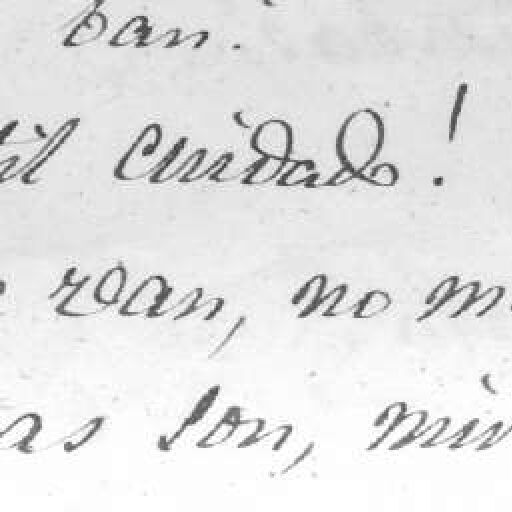 ban.
til cuidado!
van, no m
as son, mir